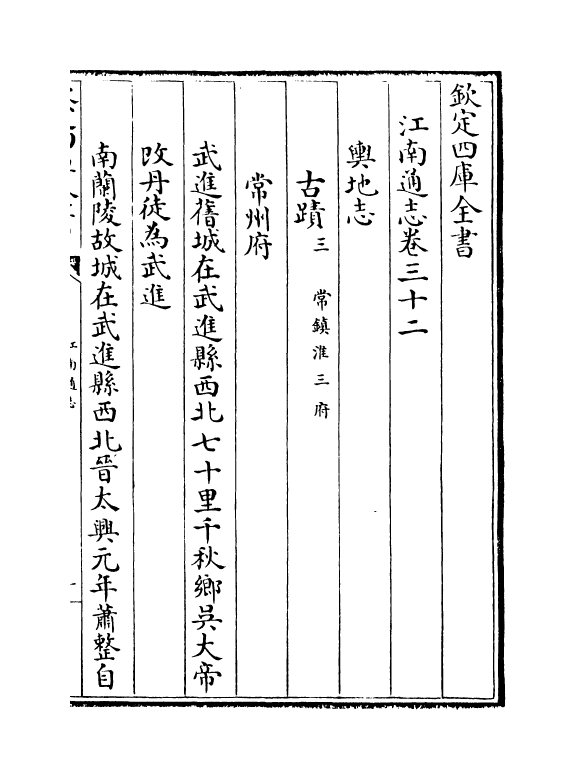 欽定四庫全書
江南通志卷三十二
輿地志
古蹟三 常鎮淮三府
常州府
武進舊城在武進縣西北七十里千秋鄉吳大帝
改丹徒為武進
南蘭陵故城在武進縣西北晉太興元年蕭整自
江南通志